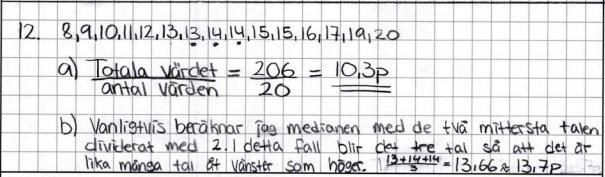 12. 8,9,10,11,12,13,13,14,14,15,15,16,17,19,20
a) Totala värdet / antal värden = 206 / 20 = 10,3p
b) Vanligtvis beräknar jag medianen med de två mittersta talen
dividerat med 2. I detta fall blir det tre tal så att det är
lika många tal åt vänster som höger. 13+14+14 / 3 = 13,66 ≈ 13,7p